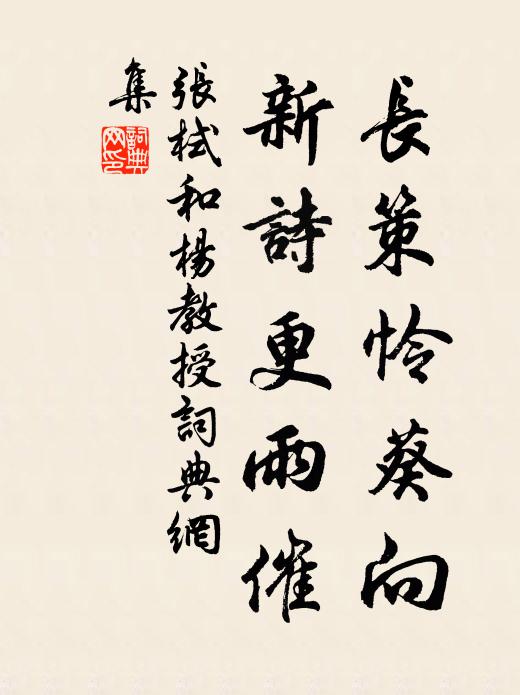 長策怜葵向
新詩更雨催
張栻和楊教授詞典網
集
詞典網印